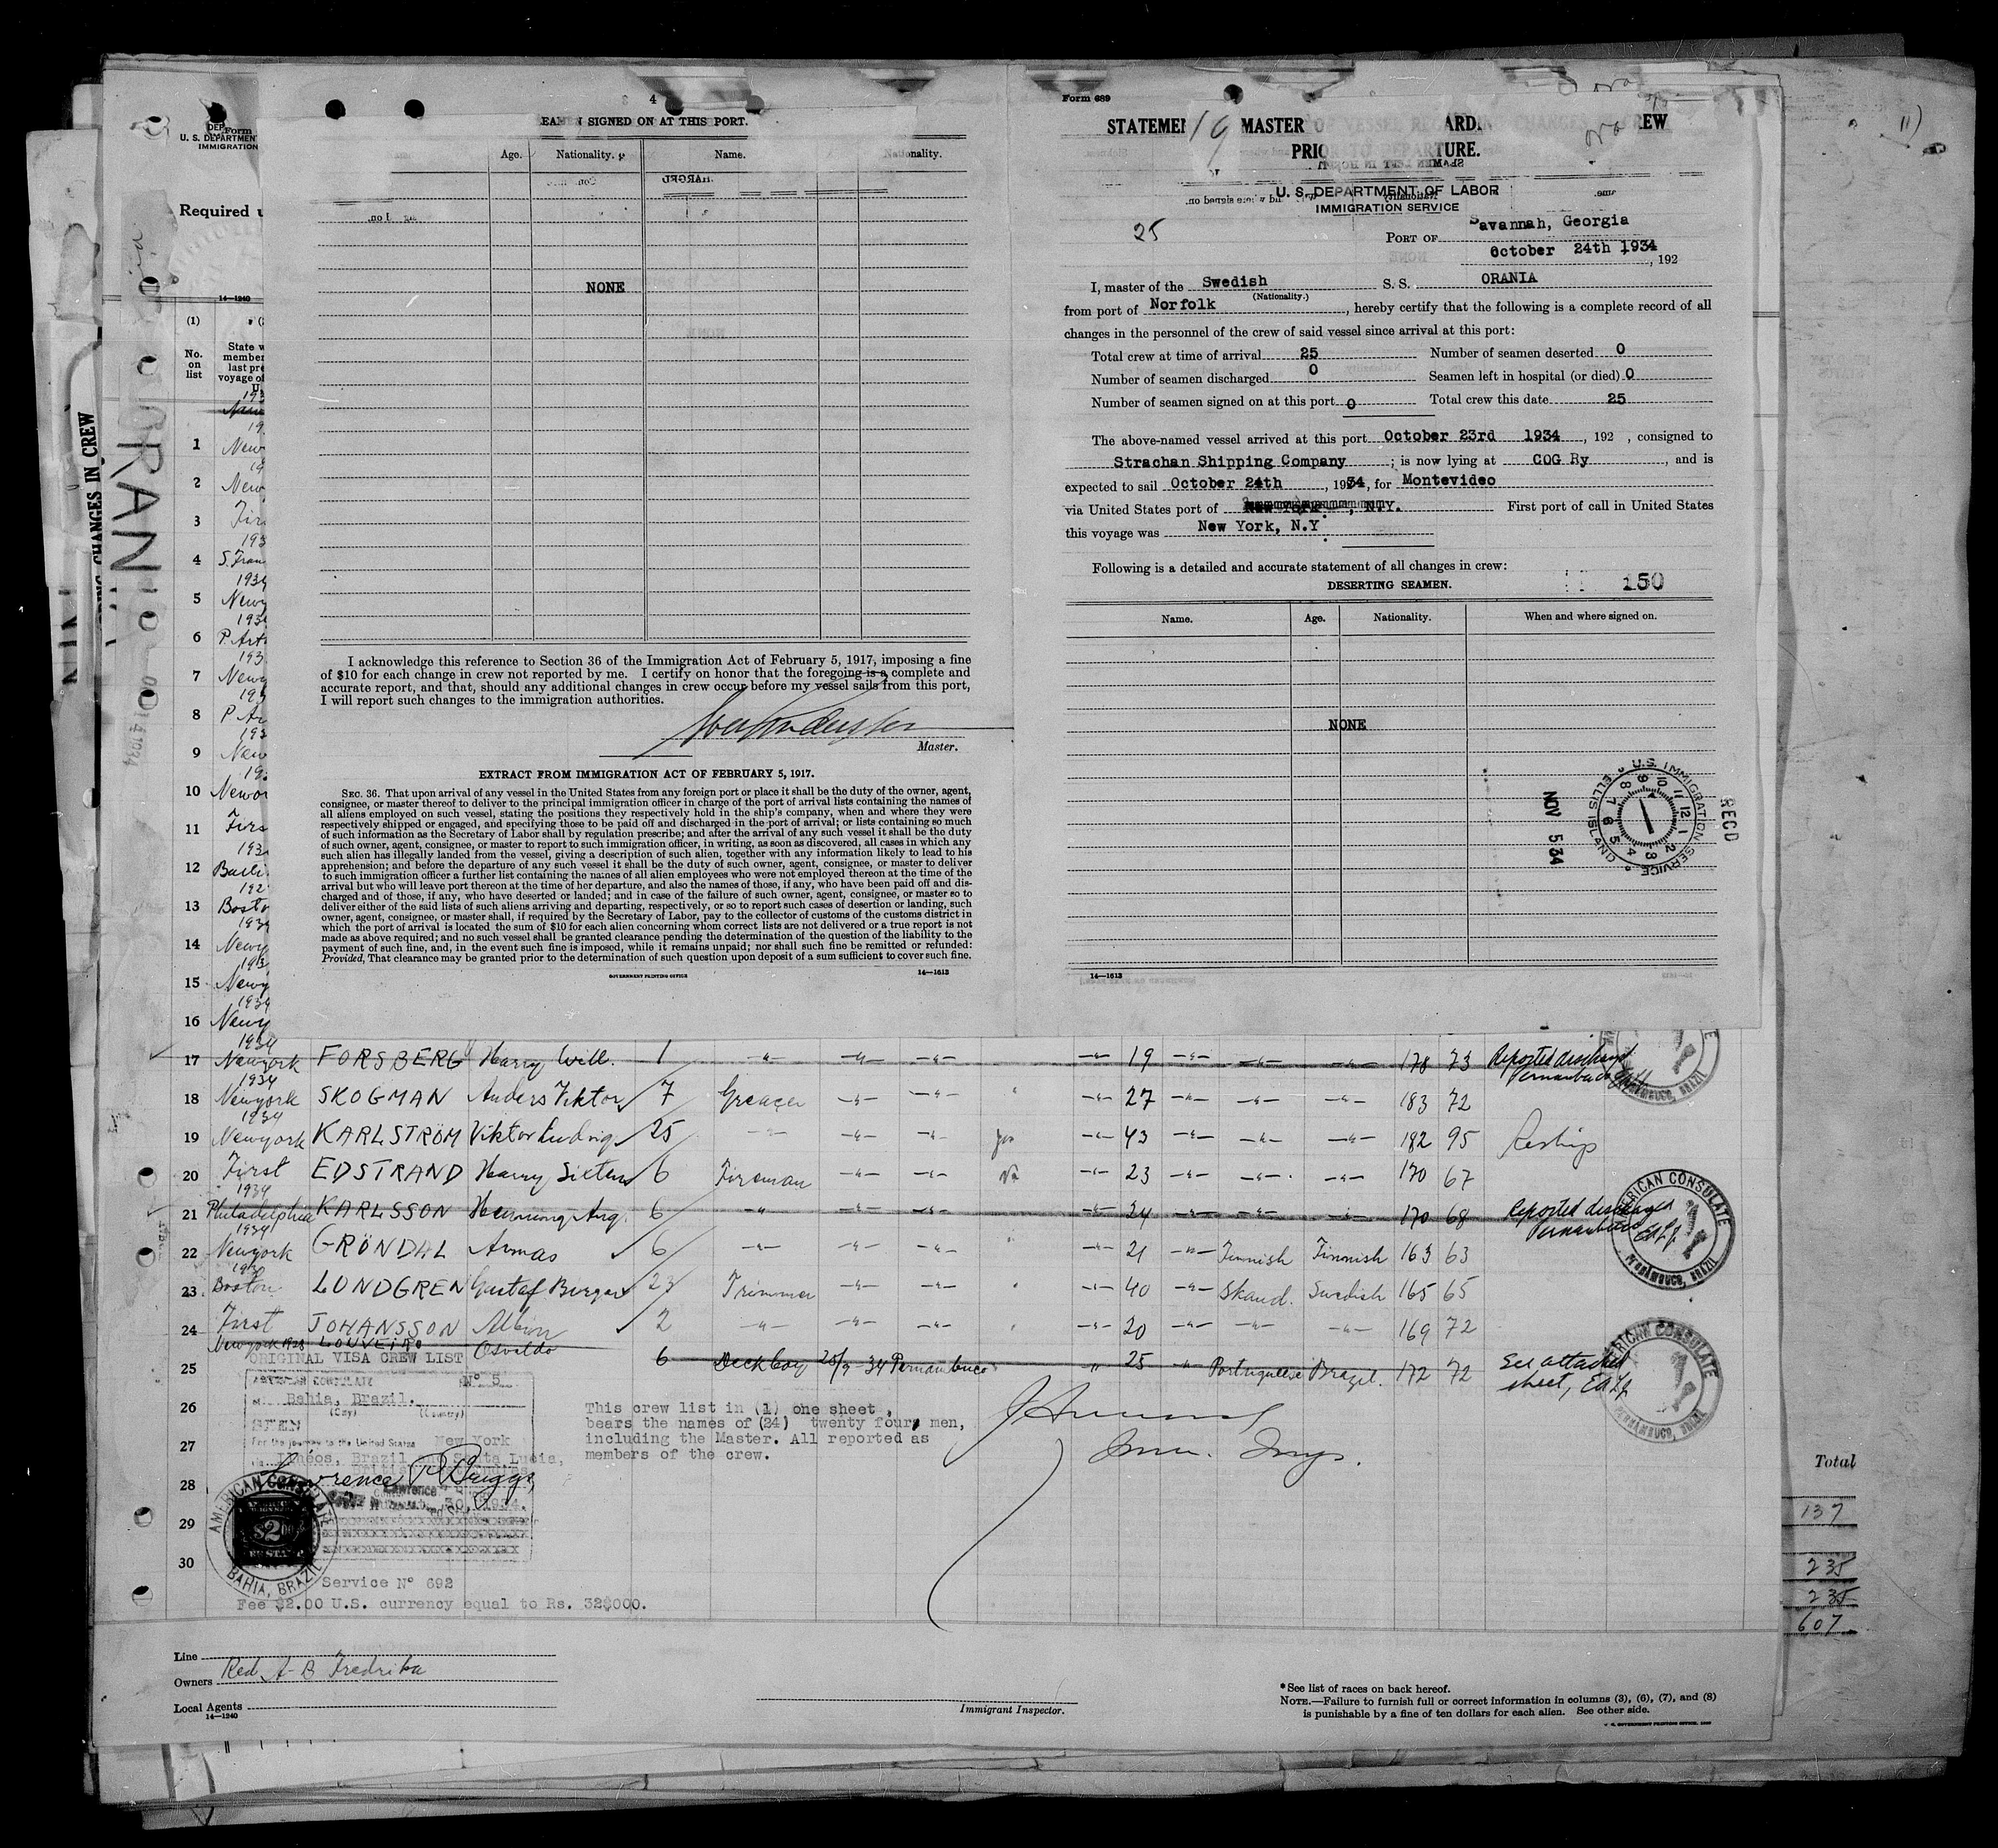 4
SIGNED ON AT THIS PORT.
Age.
Nationality.
Name.
Nationality.
NONE
I acknowledge this reference to Section 36 of the Immigration Act of February 5, 1917, imposing a fine
of $10 for each change in crew not reported by me. I certify on honor that the foregoing is a complete and
accurate report, and that, should any additional changes in crew occur before my vessel sails from this port,
I will report such changes to the immigration authorities.
Master.
EXTRACT FROM IMMIGRATION ACT OF FEBRUARY 5, 1917.
SEC. 36. That upon arrival of any vessel in the United States from any foreign port or place it shall be the duty of the owner, agent,
consignee, or master thereof to deliver to the principal immigration officer in charge of the port of arrival lists containing the names of
all aliens employed on such vessel, stating the positions they respectively hold in the ship's company, when and where they were
respectively shipped or engaged, and specifying those to be paid off and discharged in the port of arrival; or lists containing so much
of such information as the Secretary of Labor shall by regulation prescribe; and after the arrival of any such vessel it shall be the duty
of such owner, agent, consignee, or master to report to such immigration officer, in writing, as soon as discovered, all cases in which any
such alien has illegally landed from the vessel, giving a description of such alien, together with any information likely to lead to his
apprehension; and before the departure of any such vessel it shall be the duty of such owner, agent, consignee, or master to deliver
to such immigration officer a further list containing the names of all alien employees who were not employed thereon at the time of the
arrival but who will leave port thereon at the time of her departure, and also the names of those, if any, who have been paid off and dis-
charged and of those, if any, who have deserted or landed; and in case of the failure of such owner, agent, consignee, or master so to
deliver either of the said lists of such aliens arriving and departing, respectively, or so to report such cases of desertion or landing, such
owner, agent, consignee, or master shall, if required by the Secretary of Labor, pay to the collector of customs of the customs district in
which the port of arrival is located the sum of $10 for each alien concerning whom correct lists are not delivered or a true report is not
made as above required; and no such vessel shall be granted clearance pending the determination of the question of the liability to the
payment of such fine, and, in the event such fine is imposed, while it remains unpaid; nor shall such fine be remitted or refunded:
Provided, That clearance may be granted prior to the determination of such question upon deposit of a sum sufficient to cover such fine.
GOVERNMENT PRINTING OFFICE
14—1613
Form 689
STATEMEN 19 MASTER ARD. REW
PRIO TURE.
U. S. DEPARTMENT OF LABOR
IMMIGRATION SERVICE
25
PORT OF Savannah, Georgia
October 24th 1934, 192
I, master of the Swedish S. S. ORANIA
(Nationality.)
from port of Norfolk, hereby certify that the following is a complete record of all
changes in the personnel of the crew of said vessel since arrival at this port:
Total crew at time of arrival 25 Number of seamen deserted 0
Number of seamen discharged 0 Seamen left in hospital (or died) 0
Number of seamen signed on at this port 0 Total crew this date 25
The above-named vessel arrived at this port October 23rd 1934, 192 , consigned to
Strachan Shipping Company; is now lying at COG Ry, and is
expected to sail October 24th, 1934, for Montevideo
via United States port of New York, N.Y. First port of call in United States
this voyage was New York, N.Y.
Following is a detailed and accurate statement of all changes in crew:
DESERTING SEAMEN.
150
Name. Age. Nationality. When and where signed on.
NONE
RECD
NOV 5 34
U.S. IMMIGRATION SERVICE
ELLIS ISLAND
14—1613
CHANGES IN CREW
ORANIA
Form
U. S. DEPARTMENT
IMMIGRATION
Required u
14—1240
(1)
No.
on
list
1
2
3
4 S. Fran
5
6
7
8
9
10
11
12
13
14
15
16
17 Newyork FORSBERG Harry Will. 1 19 178 73 Reported discharged Pernambuco
1934
18 Newyork SKOGMAN Anders Viktor 7 Greaser 27 183 72
1934
19 Newyork KARLSTRÖM Viktor Ludvig 25 yes 43 182 95 Reships
20 First EDSTRAND Harry Sixten 6 Fireman No 23 170 67
1934
21 Philadelphia KARLSSON Henning Aug. 6 24 170 68 Reported discharged Pernambuco
1934
22 Newyork GRÖNDAL Armas 6 21 Finnish Finnish 163 63
23 Boston LUNDGREN Gustaf Birger 23 Trimmer 40 Skand. Swedish 165 65
24 First JOHANSSON Albin 2 20 169 72
25 LOUVEIRO Osvaldo 6 Deckboy 25/9-34 Pernambuco 25 Portuguese Brazil. 172 72 See attached sheet,
ORIGINAL VISA CREW LIST
Nº 5
Bahia, Brazil.
(City) (Country)
For the journey to the United States New York
Ilhéos, Brazil and Santa Lucia,
Lawrence P. Briggs,
30, 1934.
AMERICAN CONSULATE
BAHIA, BRAZIL
Service Nº 692
Fee $2.00 U.S. currency equal to Rs. 32$000.
26
27
28
29
30
This crew list in (1) one sheet,
bears the names of (24) twenty four men,
including the Master. All reported as
members of the crew.
AMERICAN CONSULATE
PERNAMBUCO, BRAZIL
AMERICAN CONSULATE
PERNAMBUCO, BRAZIL
Total
137
235
235
607
Line
Owners Red. A-B Fredrika
Local Agents
14—1240
Immigrant Inspector.
* See list of races on back hereof.
NOTE.—Failure to furnish full or correct information in columns (3), (6), (7), and (8)
is punishable by a fine of ten dollars for each alien. See other side.